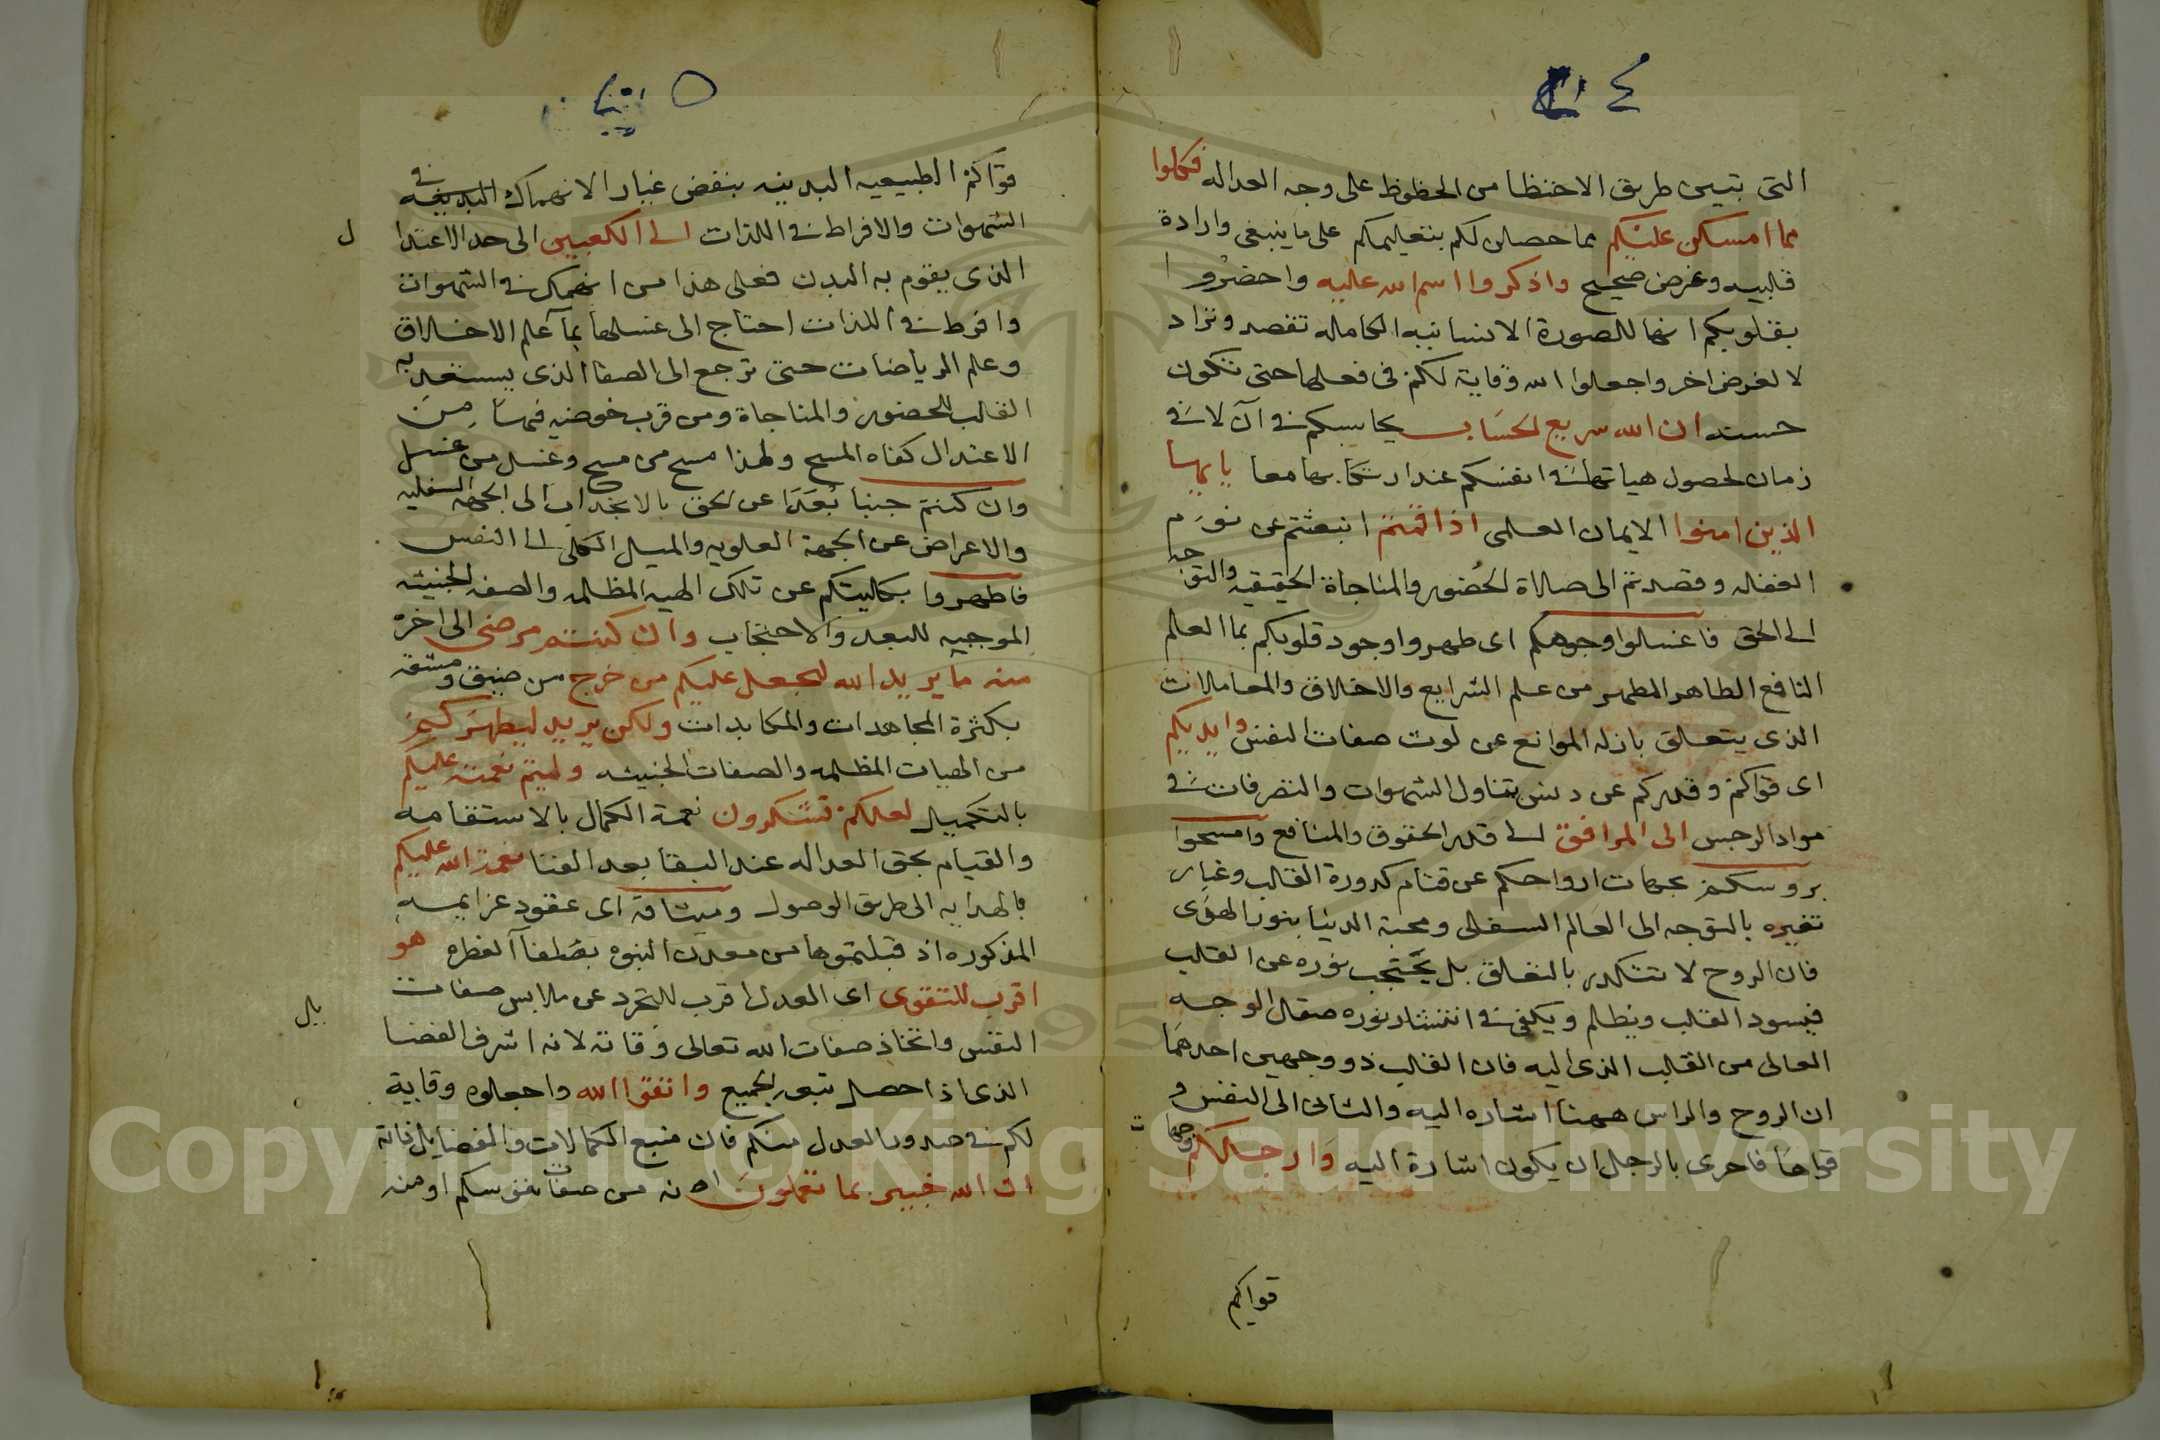 ٤
التى تبين طريق الاحتظا من الحظوظ على وجه العداله فكلوا
مما امسكن عليكم مما حصلن لكم بتعليمكم على ما ينبغى وارادة
قلبيه وغرض صحيح واذكروا اسم الله عليه واحضروا
بقلوبكم انها للصورة الانسانيه الكامله تقصد وتراد
لا لغرض اخر واجعلوا الله وقاية لكم فى فعلها حتى تكون
حسنه ان الله سريع الحساب يحاسبكم فى آن لا فى
زمان لحصول هياتها فى انفسكم عند ارتكابها معا يا ايها
الذين امنوا الايمان العلمى اذا قمتم انبعثتم عن نوم
الغفله وقصدتم الى صلاة الحضور والمناجاة الحقيقيه والتوجه
الى الحق فاغسلوا وجوهكم اى طهروا وجود قلوبكم بما العلم
النافع الطاهر المطهر من علم الشرايع والاخلاق والمعاملات
الذى يتعلق بازله الموانع عن لوث صفات النفس وايديكم
اى قواكم وقدركم عن دنس تناول الشهوات والتصرفات فى
مواد الرجس الى المرافق الى قدر الحقوق والمنافع وامسحوا
بروسكم بجهات ارواحكم عن قتام كدورة القلب وغبار
تغيره بالتوجه الى العالم السفلى ومحبة الدنيا بنور الهدى
فان الروح لا تتكدر بالتعلق بل يحتجب نوره عن القلب
فيسود القلب ويظلم ويكفى فى انتشار نوره صقال الوجه
العالى من القلب الذى اليه فان القلب ذو وجهين احدهما
الى الروح والراس ههنا اشاره اليه والثانى الى النفس و
قواها فاحرى بالرجل ان يكون اشارة اليه وارجلكم وجهات
قواكم
٥
قواكم الطبيعيه البدنيه بنفض غبار الانهماك فى
الشهوات والافراط فى اللذات الى الكعبين الى حد الاعتدال
الذى يقوم به البدن فعلى هذا من انهمك فى الشهوات
وافرط فى اللذات احتاج الى غسلها بما علم الاخلاق
وعلم الرياضات حتى ترجع الى الصفا الذى يستعد به
القلب للحضور والمناجاة ومن قرب خوضه فيها من
الاعتدال كفاه المسح ولهذا مسح من مسح وغسل من غسل
وان كنتم جنبا بعدا عن الحق بالانجذاب الى الجهه السفليه
والاعراض عن الجهة العلويه والميل الكلى الى النفس
فاطهروا بكليتكم عن تلك الهيه المظلمه والصفه الخبيثه
الموجبه للبعد والاحتجاب وان كنتم مرضى الى اخره
منه ما يريد الله ليجعل عليكم من حرج من ضيق ومشقه
بكثرة المجاهدات والمكابدات ولكن يريد ليطهركم
من الهيات المظلمه والصفات الخبيثه وليتم نعمته عليكم
بالتكميل لعلكم تشكرون نعمة الكمال بالاستقامه
والقيام بحق العداله عند البقا بعد الفنا نعمة الله عليكم
بالهدايه الى طريق الوصول وميثاقه اى عقود عزايمه
المذكوره اذ قبلتموها من معدن النبوه بصفا الفطره هو
اقرب للتقوى اى العدل اقرب للتجرد عن ملابس صفات
النفس واتخاذ صفات الله تعالى وقاته لانه اشرف الفضايل
الذى اذا حصل تبعه الجميع واتقوا الله واجعلوه وقاية
لكم فى صدور العدل منكم فان منبع الكمالات والفضايل ذاته
ان الله خبير بما تعملون انه من صفات نفوسكم او منه
Copyright © King Saud University
1957